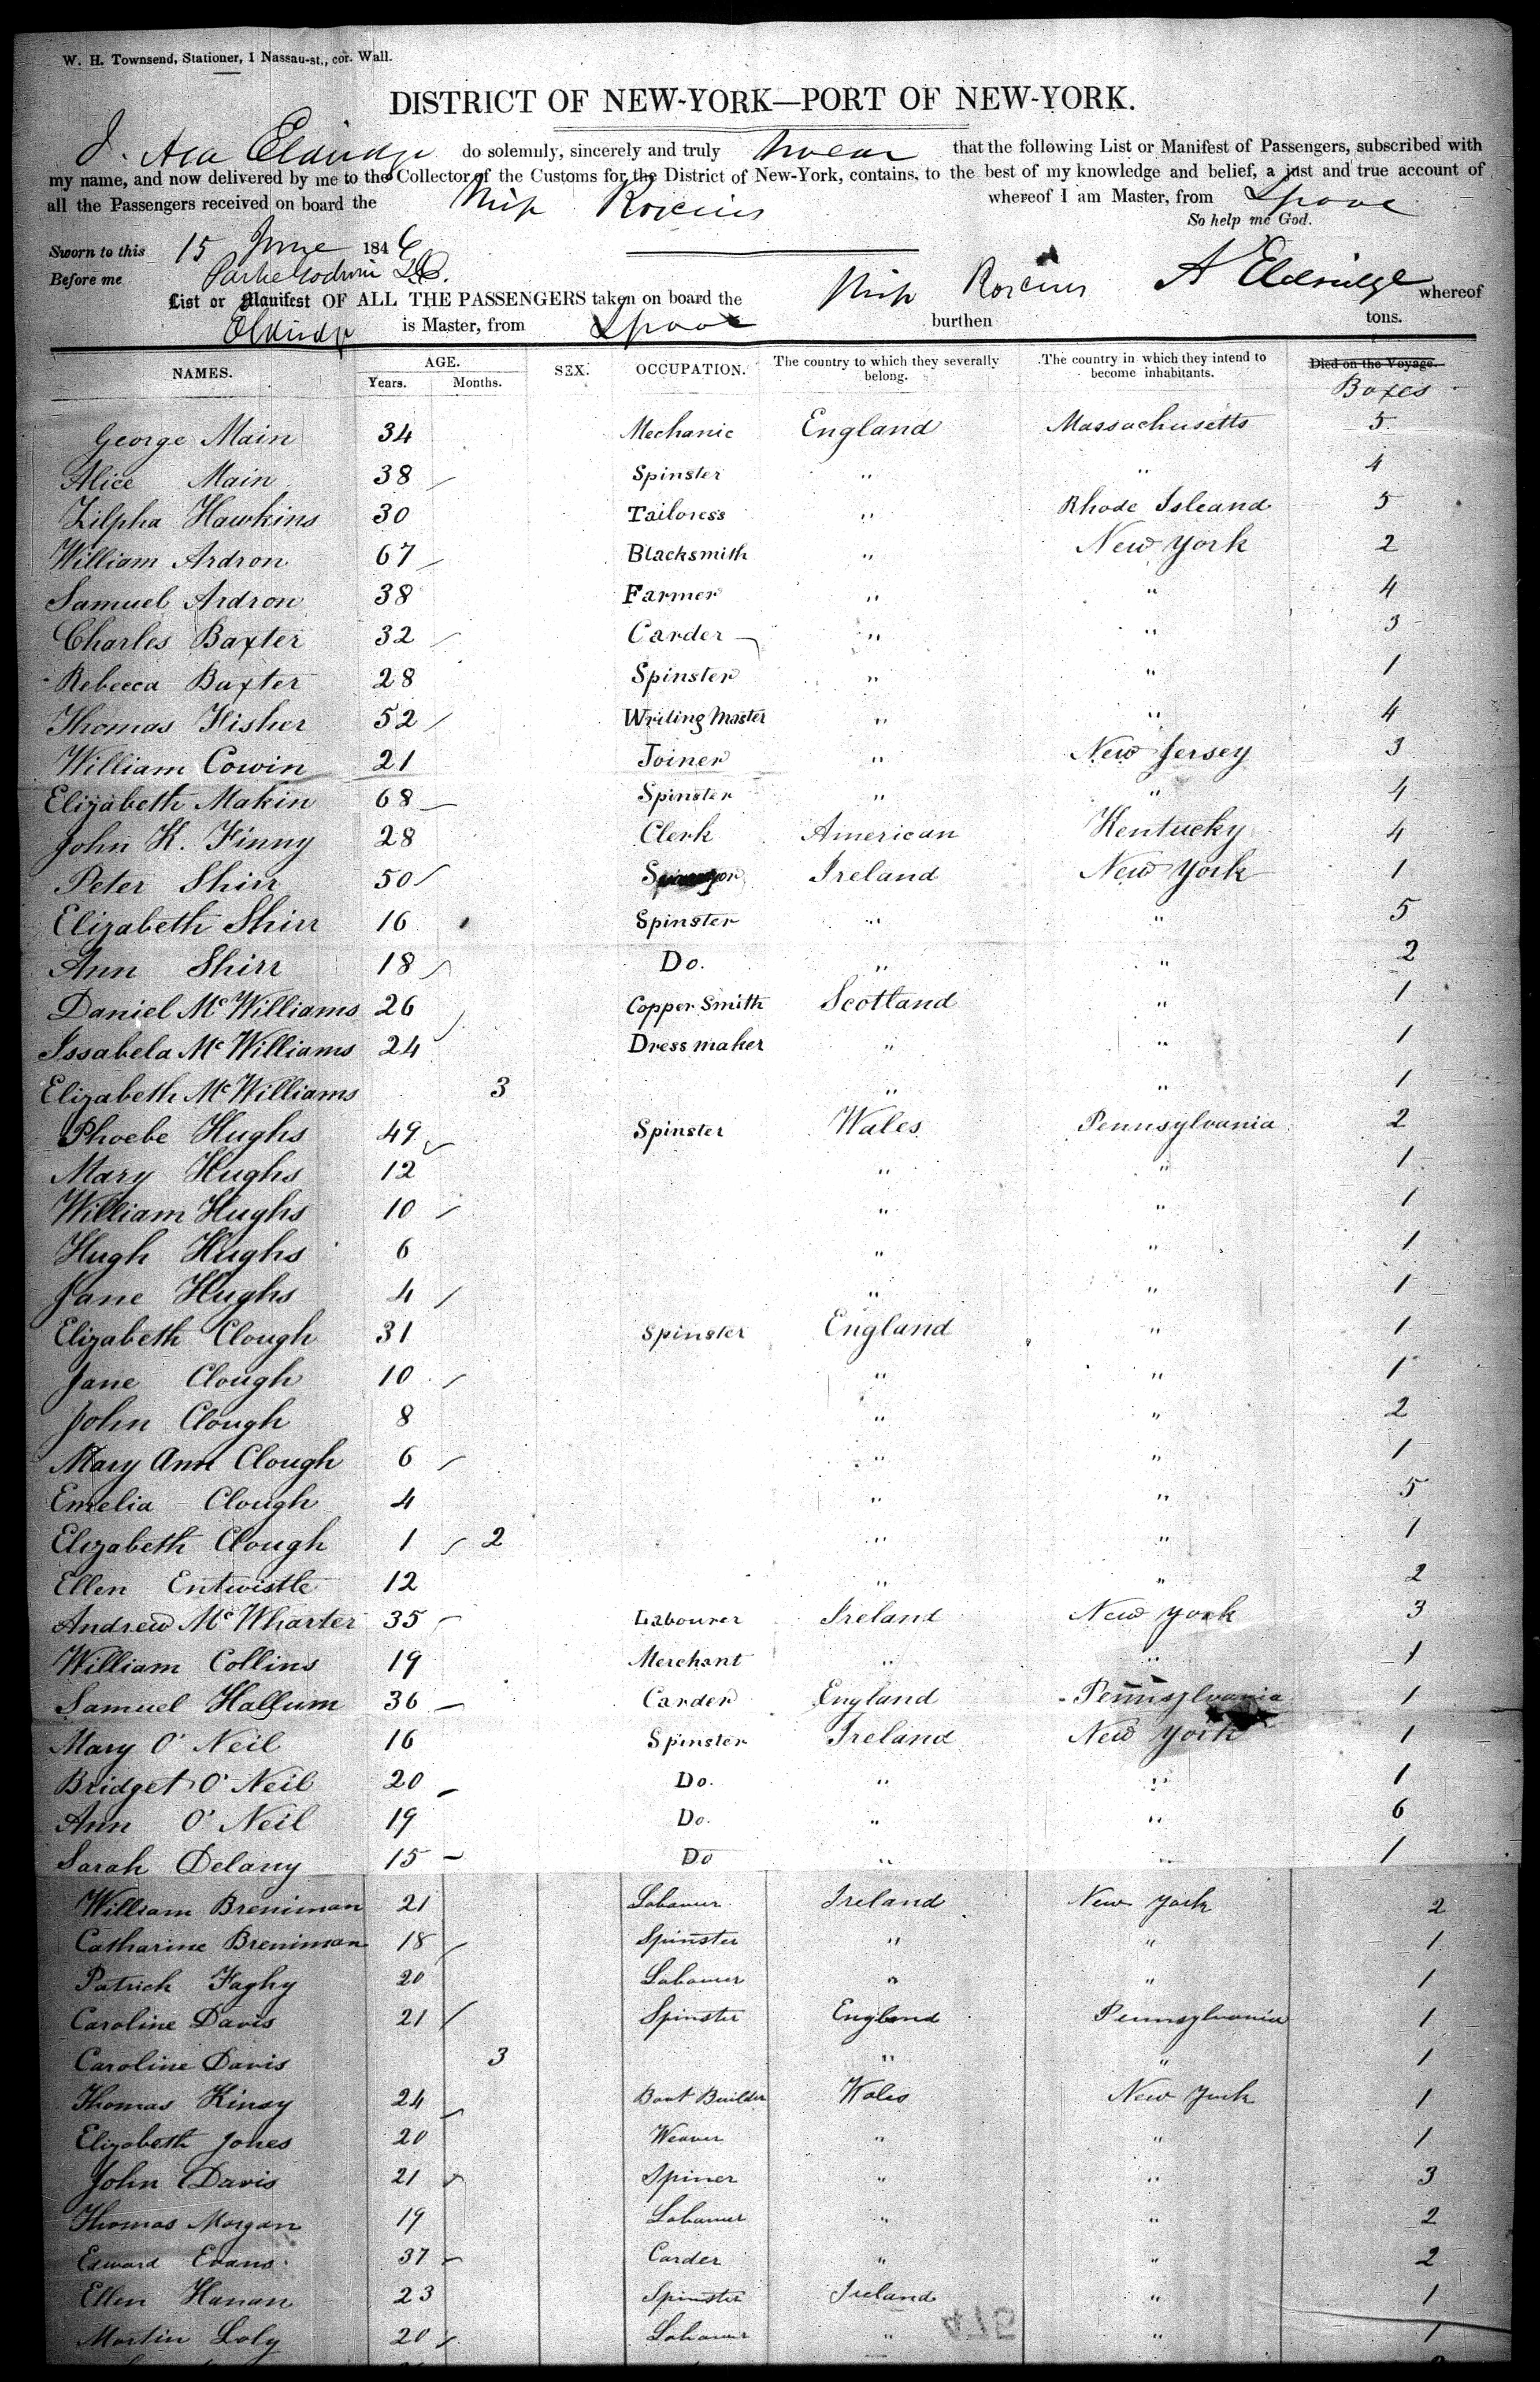 W. H. Townsend, Stationer, 1 Nassau-st., cor. Wall.
DISTRICT OF NEW-YORK—PORT OF NEW-YORK.
I. Asa Eldridge do solemnly, sincerely and truly swear that the following List or Manifest of Passengers, subscribed with
my name, and now delivered by me to the Collector of the Customs for the District of New-York, contains, to the best of my knowledge and belief, a just and true account of
all the Passengers received on board the Ship Roscius whereof I am Master, from Lpool
So help me God.
Sworn to this 15 June 1846
Before me Parke Godwin A Eldridge
List or Manifest OF ALL THE PASSENGERS taken on board the Ship Roscius whereof
Eldridge is Master, from Lpool burthen tons.
NAMES. AGE. SEX. OCCUPATION. The country to which they severally belong. The country in which they intend to become inhabitants. Died on the Voyage.
Years. Months. Boxes
George Main 34 Mechanic England Massachusetts 5
Alice Main 38 Spinster " " 4
Zilpha Hawkins 30 Tailoress " Rhode Isleand 5
William Ardron 67 Blacksmith " New York 2
Samuel Ardron 38 Farmer " " 4
Charles Baxter 32 Carder " " 3
Rebecca Baxter 28 Spinster " " 1
Thomas Fisher 52 Writing Master " " 4
William Cowin 21 Joiner " New Jersey 3
Elizabeth Makin 68 Spinster " " 4
John K. Finny 28 Clerk American Kentucky 4
Peter Shirr 50 Ireland New York 1
Elizabeth Shirr 16 Spinster " " 5
Ann Shirr 18 Do. " " 2
Daniel McWilliams 26 Copper Smith Scotland " 1
Issabela McWilliams 24 Dress maker " " 1
Elizabeth McWilliams 3 " " 1
Phoebe Hughs 49 Spinster Wales Pennsylvania 2
Mary Hughs 12 " " 1
William Hughs 10 " " 1
Hugh Hughs 6 " " 1
Jane Hughs 4 " " 1
Elizabeth Clough 31 Spinster England " 1
Jane Clough 10 " " 1
John Clough 8 " " 2
Mary Ann Clough 6 " " 1
Emelia Clough 4 " " 5
Elizabeth Clough 1 2 " " 1
Ellen Entwistle 12 " " 2
Andrew McWharter 35 Labourer Ireland New York 3
William Collins 19 Merchant " " 1
Samuel Hallum 36 Carder England Pennsylvania 1
Mary O'Neil 16 Spinster Ireland New York 1
Bridget O'Neil 20 Do. " " 1
Ann O'Neil 19 Do. " " 6
Sarah Delany 15 Do " " 1
William Breniman 21 Labourer Ireland New York 2
Catharine Breniman 18 Spinster " " 1
Patrick Faghy 20 Labourer " " 1
Caroline Davis 21 Spinster England Pennsylvania 1
Caroline Davis 3 " " 1
Thomas Kinsy 24 Boat Builder Wales New York 1
Elizabeth Jones 20 Weaver " " 1
John Davis 21 Spiner " " 3
Thomas Morgan 19 Labourer " " 2
Edward Evans 37 Carder " " 2
Ellen Hanan 23 Spinster Ireland " 1
Martin Loly 20 Labourer " " 1